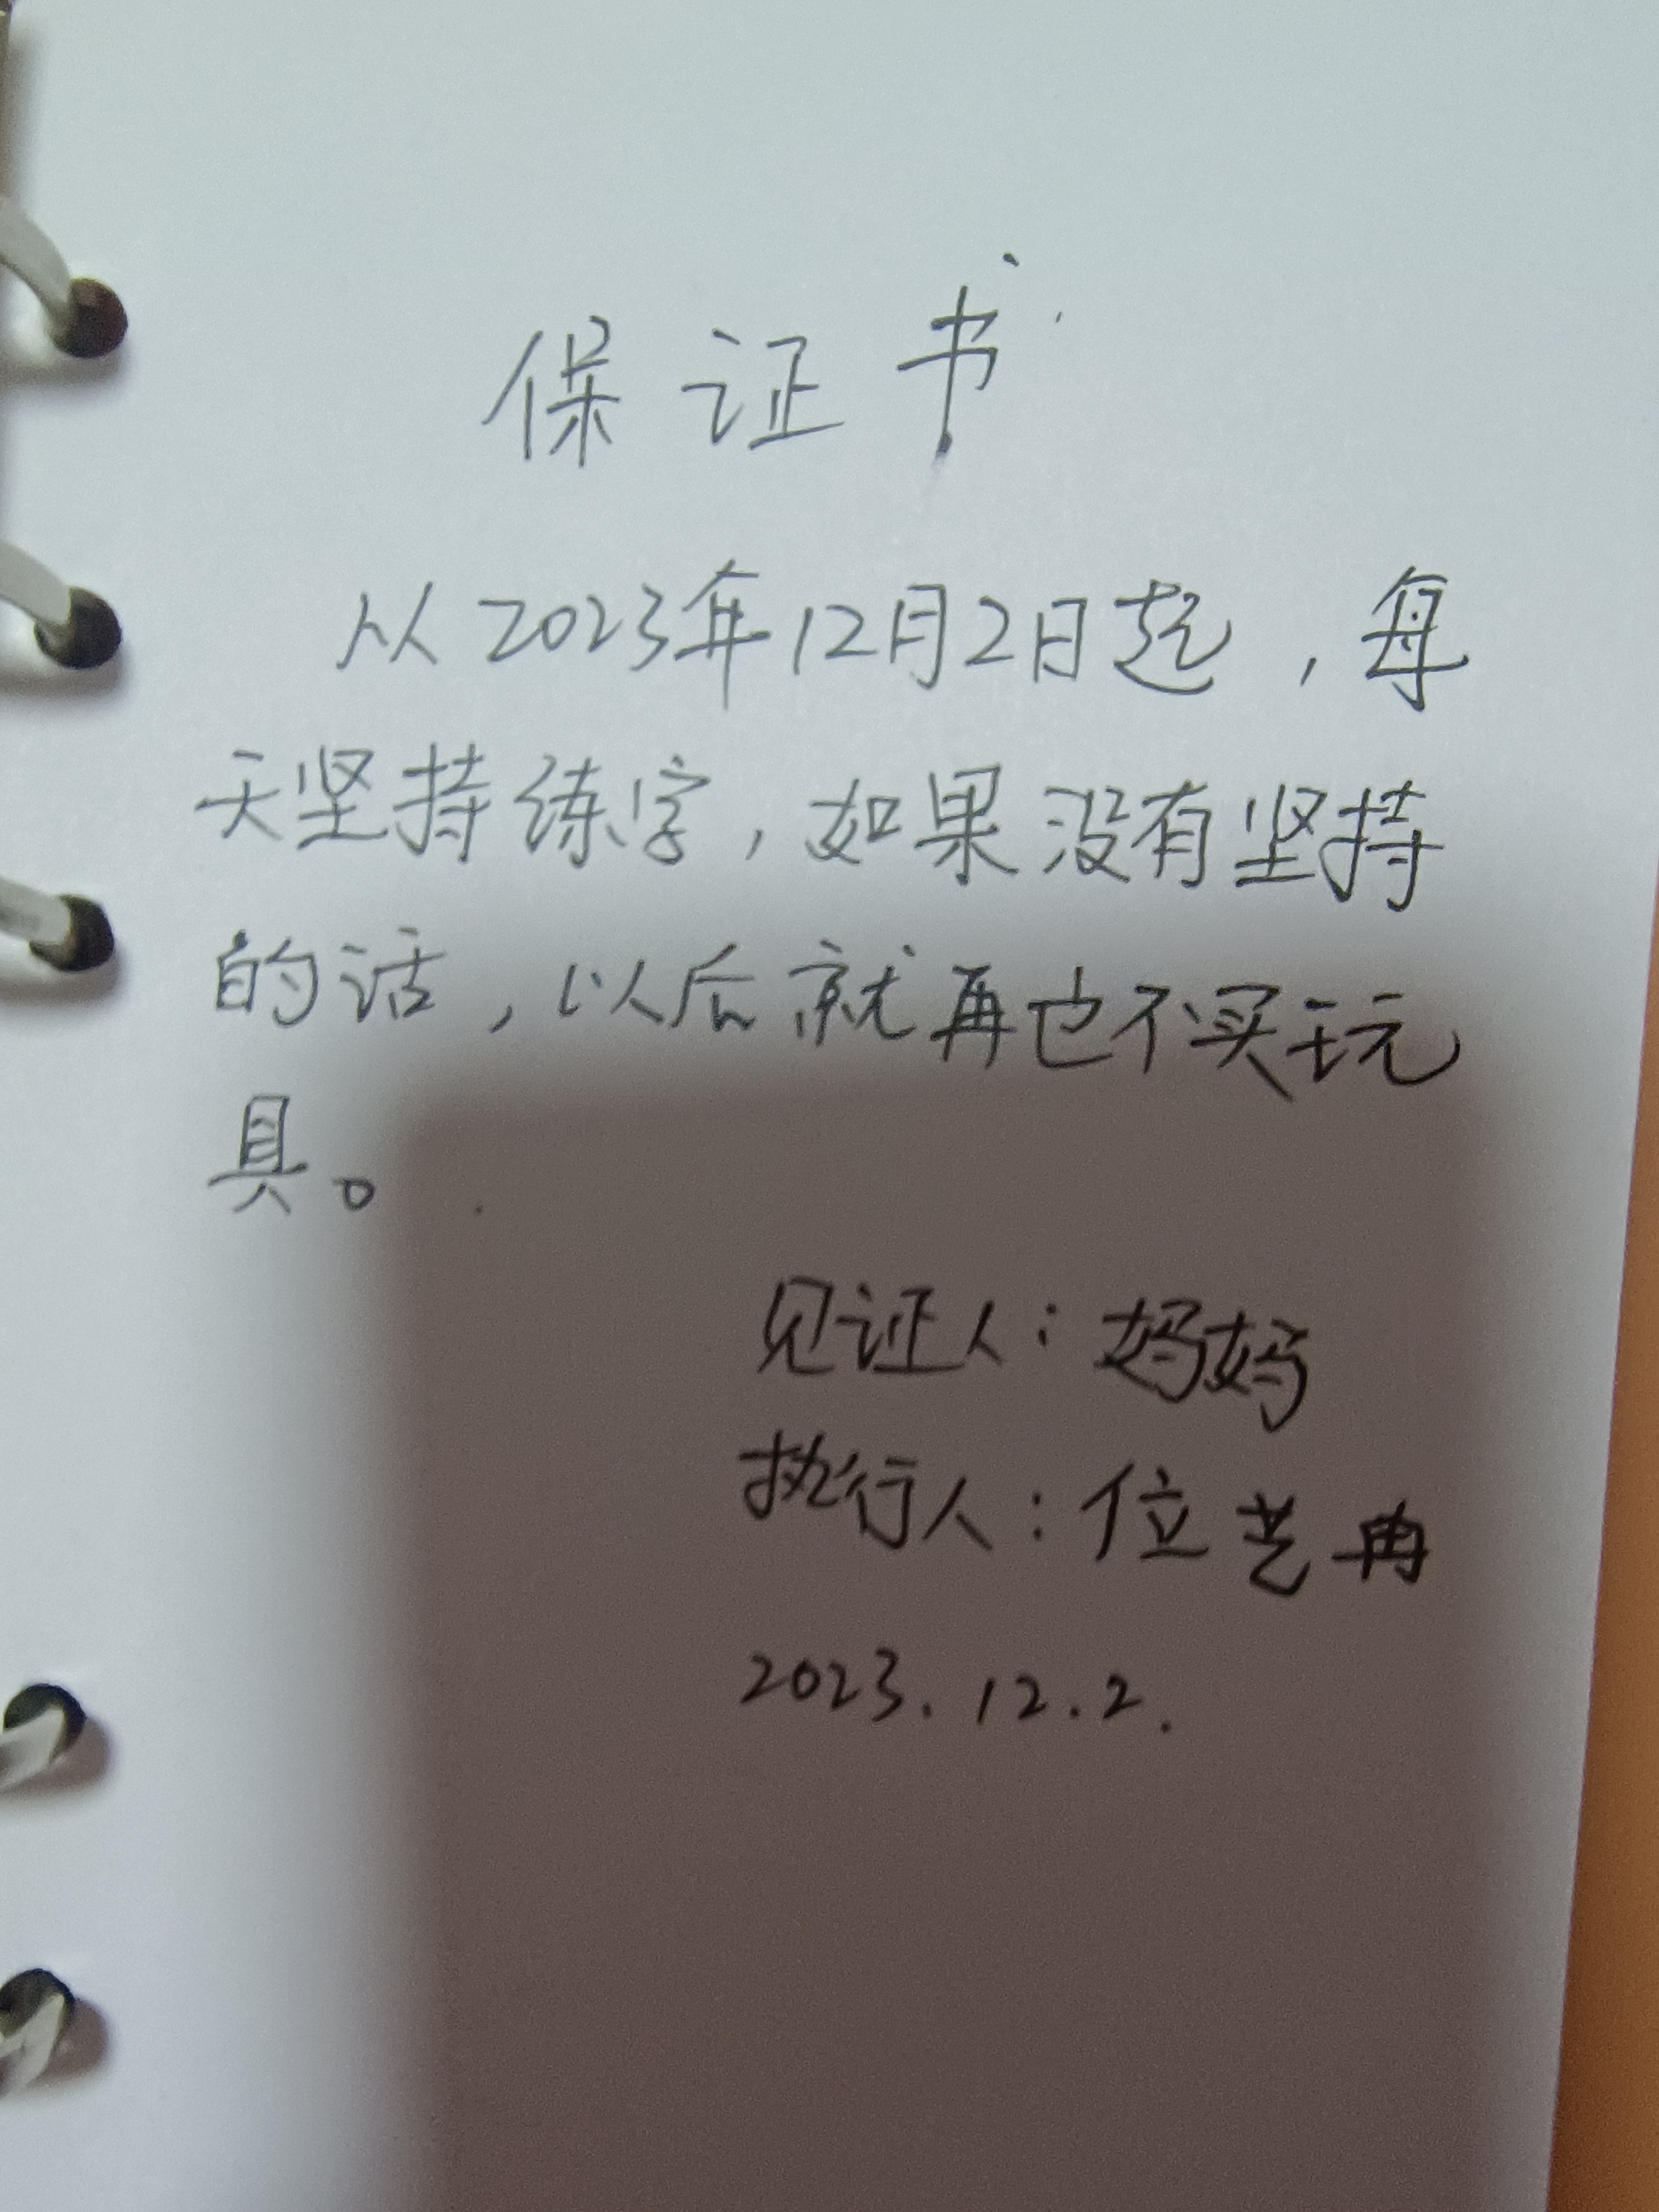 保证书
从2023年12月2日起，每
天坚持练字，如果没有坚持
的话，以后就再也不买玩
具。
见证人：妈妈
执行人：位艺冉
2023.12.2.